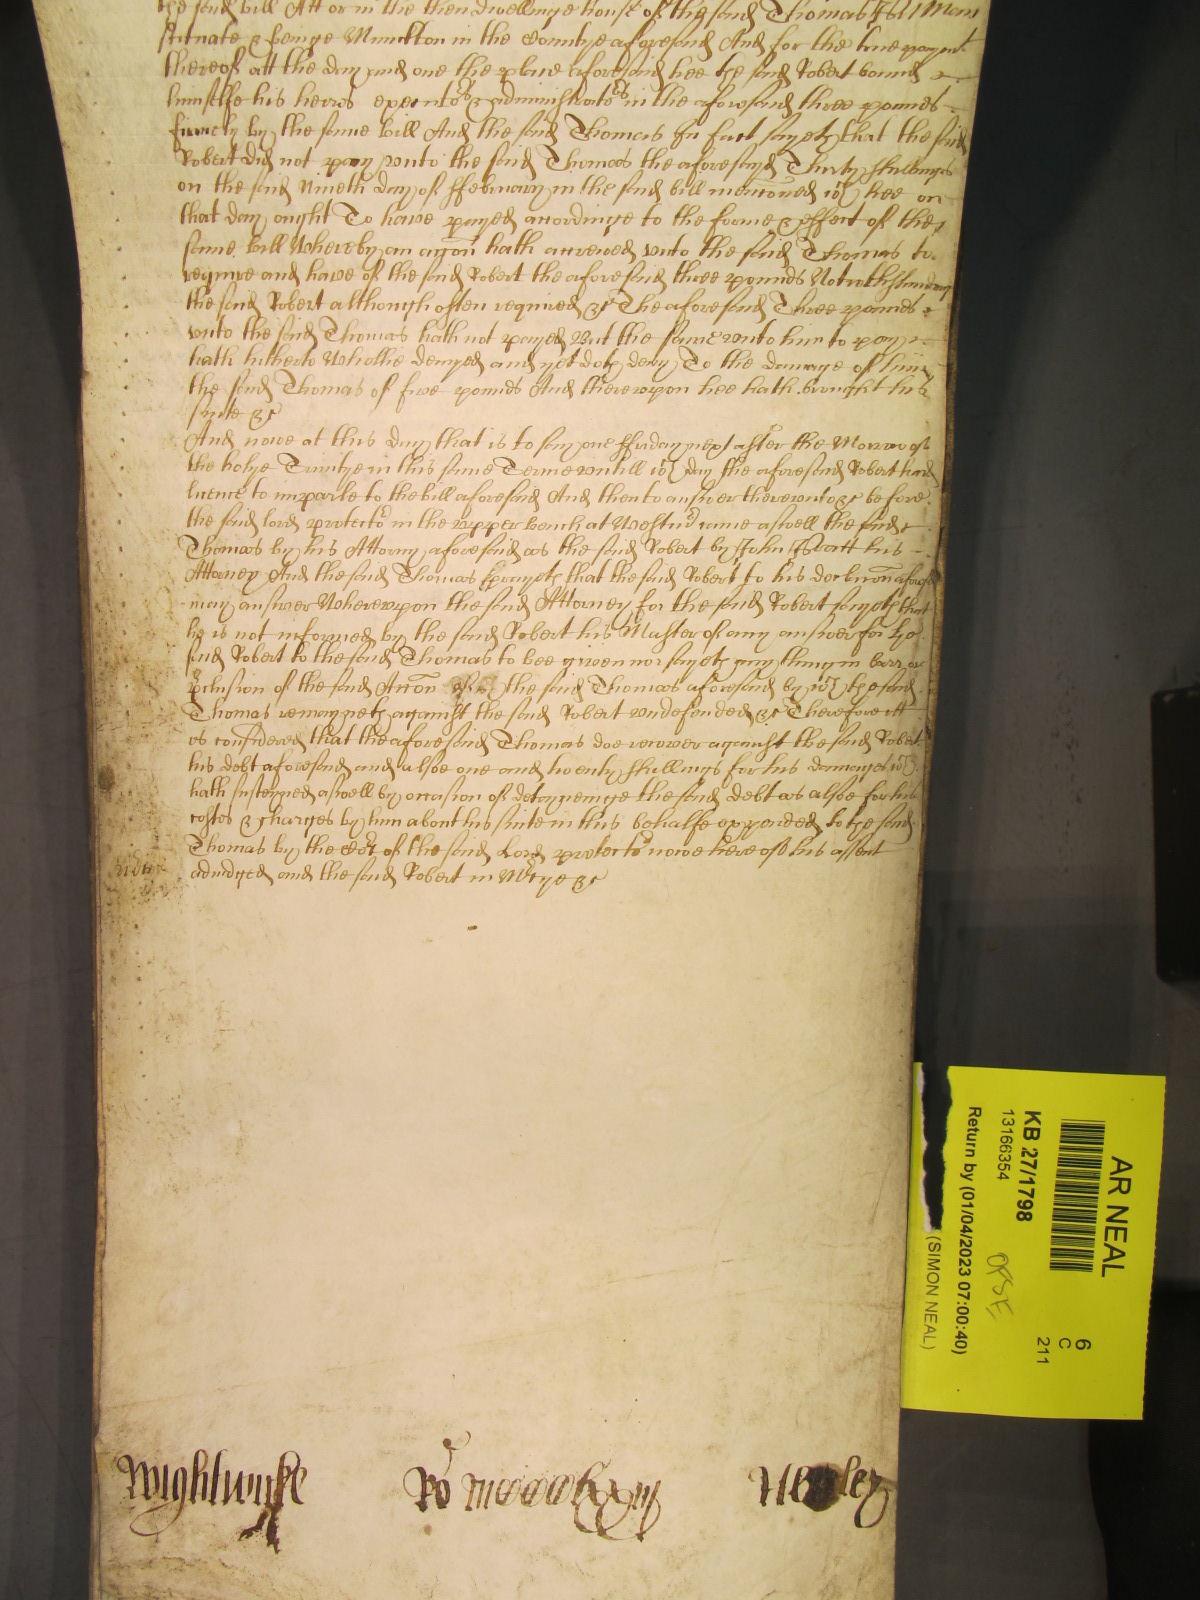 the said bill Att or in the then dwellinge house of the said Thomas
scituate & beinge Munckton in the Countye aforesaid And for the true paym̃t
thereof att the day and one the place aforesaid hee the said Robert bound
himselfe his heires executors & administrators in the aforesaid three pounds
firmely by the same bill And the said Thomas In fact sayeth that the said
Robert did not pay vnto the said Thomas the aforesayd Thirty shillinges
on the said Nineth day of ffebruary in the said bill menc̃oned wch hee on
that day ought To haue payed accordinge to the forme & effect of the
same bill Whereby an acc̃on hath accrewed vnto the said Thomas to
require and haue of the said Robert the aforesaid three pounds Notwithstanding
the said Robert although often required &c The aforesaid Three pounds
vnto the said Thomas hath not payed But the same vnto him to paye
hath hitherto Whollie denyed and yet doth deny To the damage of him
the said Thomas of fiue pounds And therevpon hee hath brought his
suite &c
And nowe at this day that is to say one ffriday next after the Morrow of
the holye Trinitye in this same Terme vntill wch day the aforesaid Robert had
licence to imparle to the bill aforesaid And then to answer therevnto &c before
the said lord protector in the vpper bench at Westmr came aswell the said
Thomas by his Attorny aforesaid as the said Robert by John his
Attorney And the said Thomas prayeth that the said Robert to his declarac̃on aforesd
may answer Wherevpon the said Attorney for the said Robert sayeth that
he is not informed by the said Robert his Master of any answer for the
said Robert to the said Thomas to bee giuen nor sayeth any thing in barr or
p̱clusion of the said Acc̃on of the said Thomas aforesaid by wch the said
Thomas remayneth against the said Robert vndefended &c Therefore itt
is considered that the aforesaid Thomas doe recouer against the said Robert
his debt aforesaid and alsoe one and twenty shillings for his damages wch
hath susteyned aswell by occasion of deteyneinge the said debt as alsoe for his
costes & charges by him about his suite in this behalfe expended to the said
Thomas by the Cort of the said Lord protector nowe here of his assent
adiudged and the said Robert in Mercye &c
Wightwicke Ro Henley
AR NEAL
6
C
211
KB 27/1798
13166354
Return by (01/04/2023 07:00:40)
(SIMON NEAL)